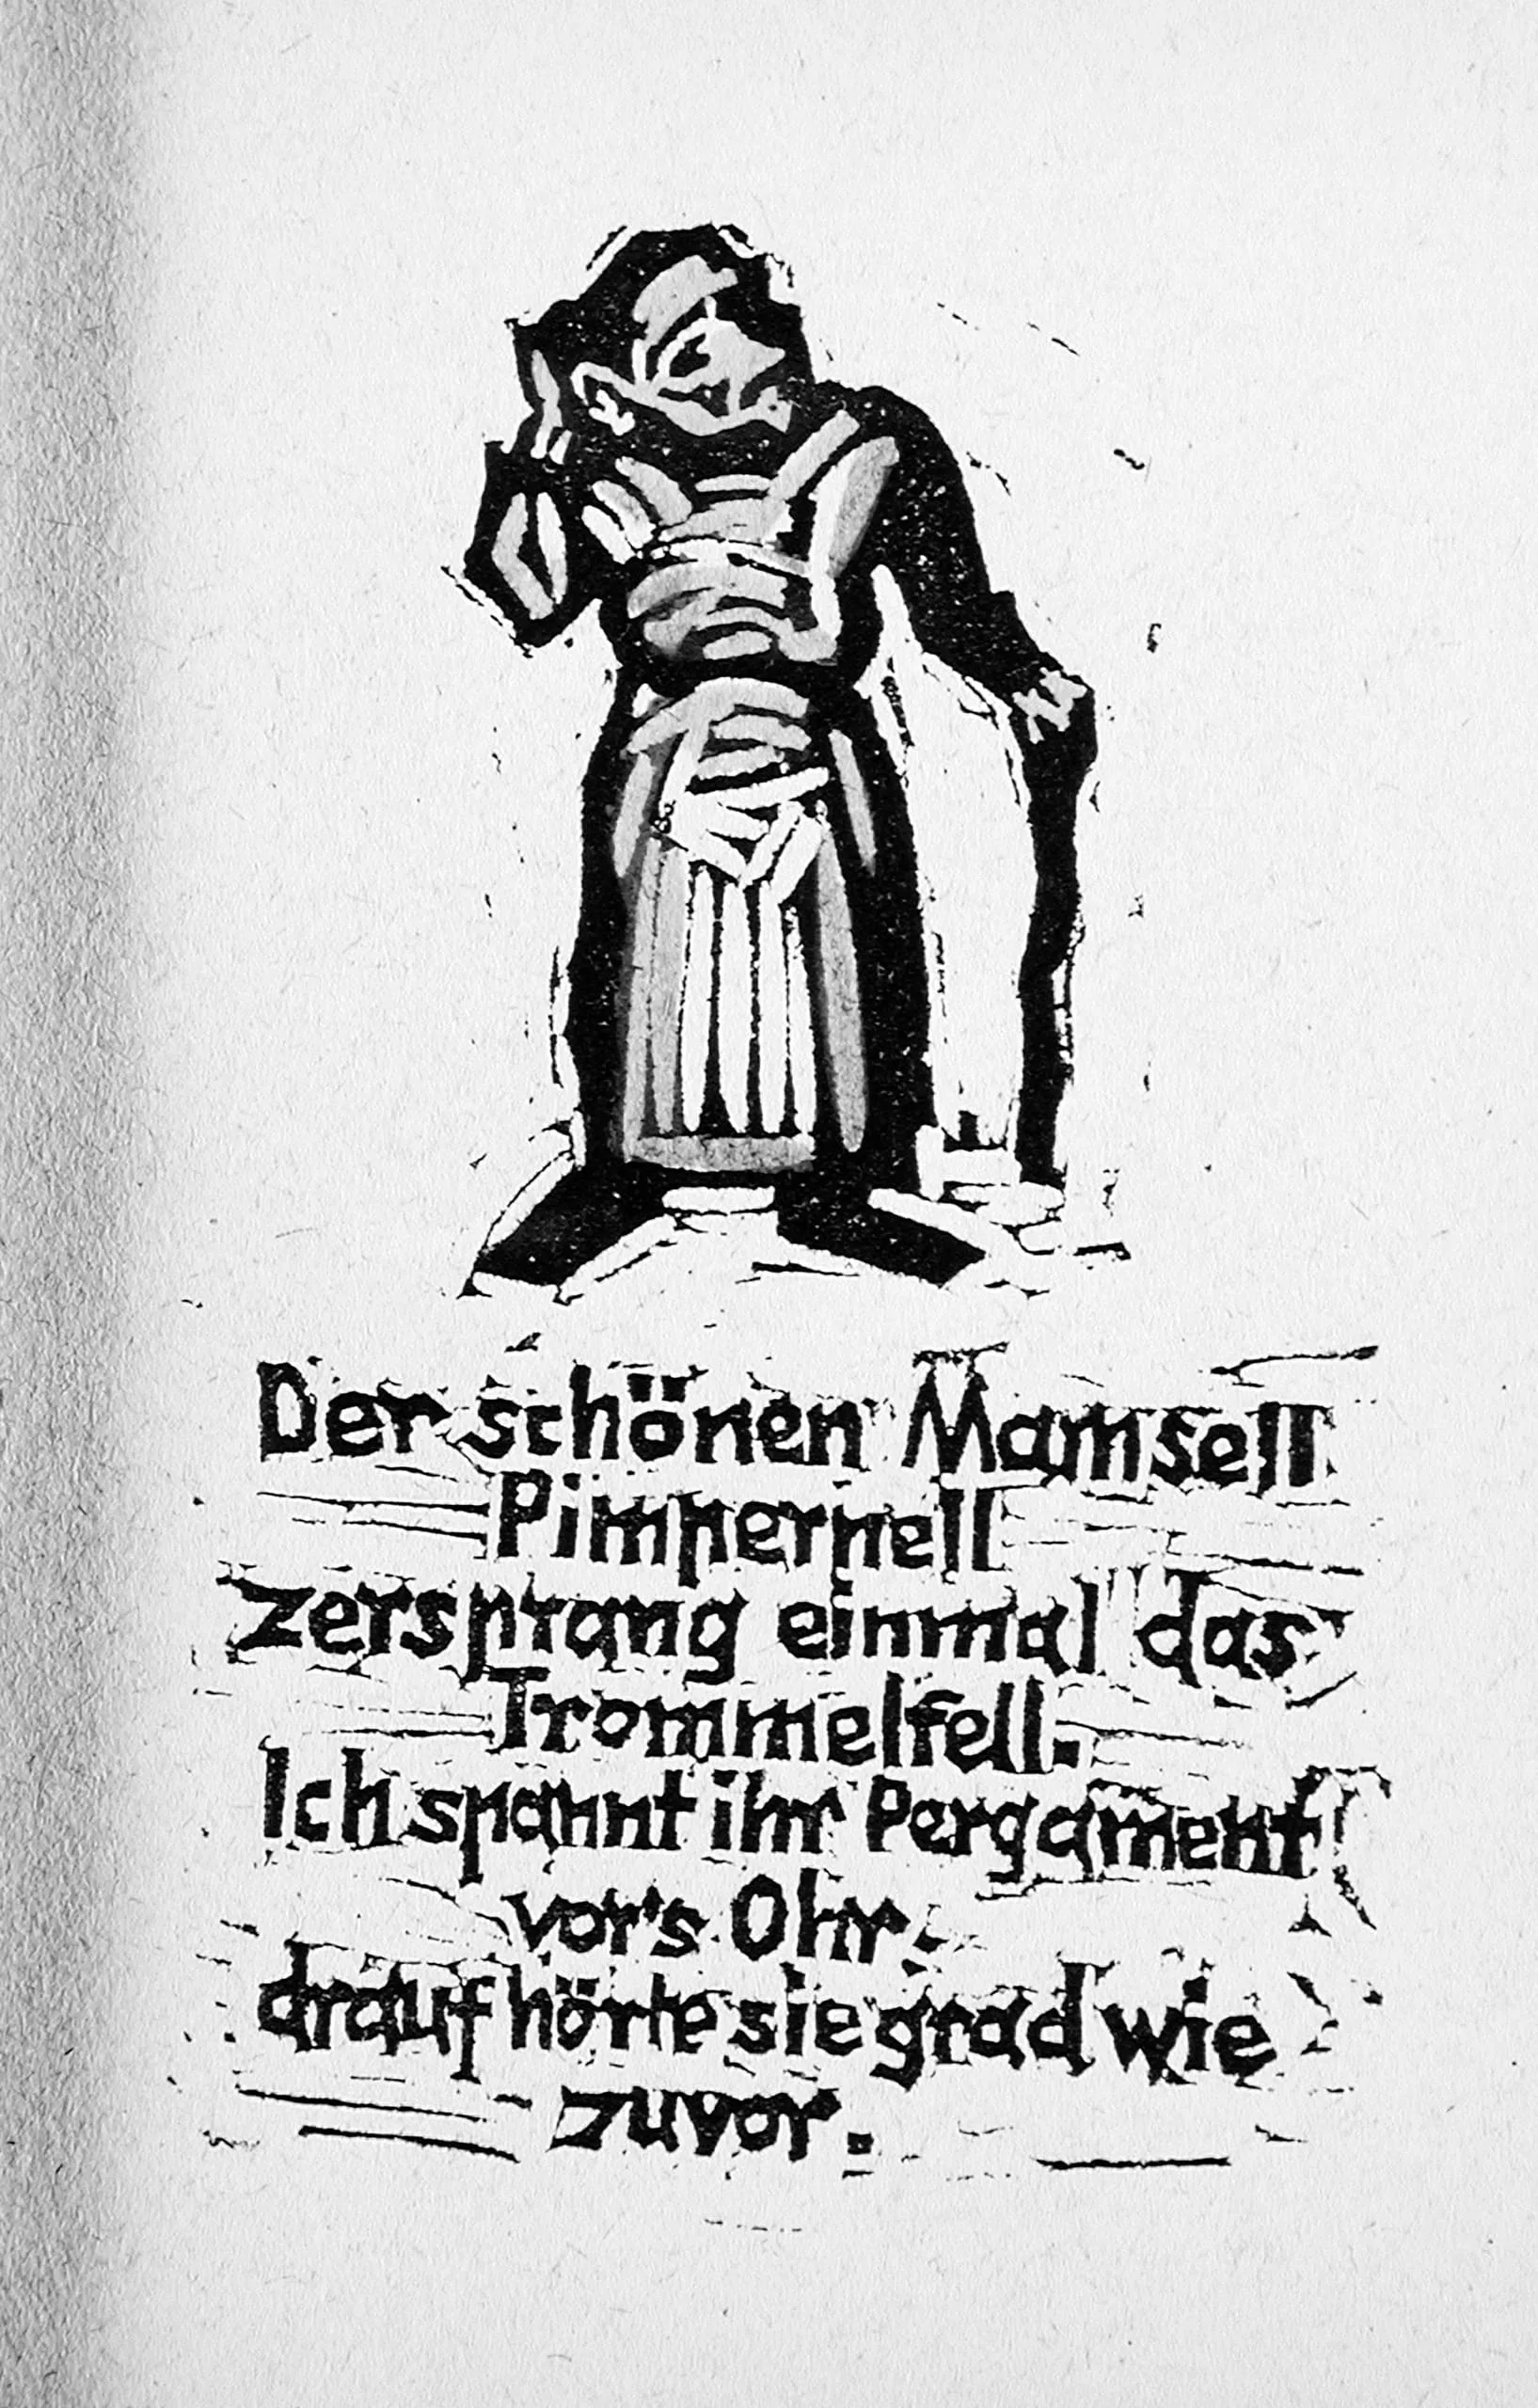 Der schönen Mamsell
Pimpernell
zersprang einmal das
Trommelfell.
Ich spannt ihr Pergament
vor's Ohr,
drauf hörte sie grad wie
zuvor.